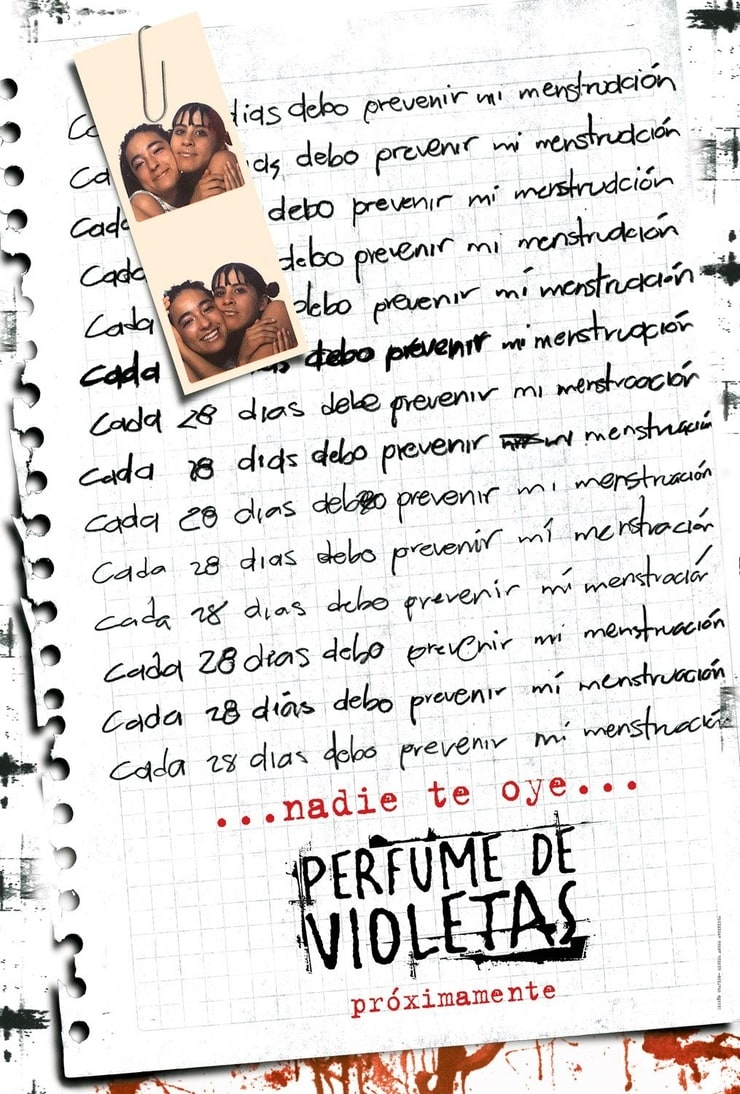 días debo prevenir mi menstruación
debo prevenir mi menstruación
Cada debo prevenir mi menstruación
Cada debo prevenir mi menstruación
Cada debo prevenir mi menstruación
Cada debo prevenir mi menstruación
Cada 28 dias debe prevenir mi menstruación
Cada 28 dias debo prevenir mi menstruación
Cada 28 dias debo prevenir mi menstruación
Cada 28 dias debo prevenir mí menstruación
Cada 28 dias debo prevenir mí menstruación
Cada 28 dias debo prevenir mi menstruación
Cada 28 días debo prevenir mí menstruación
Cada 28 dias debo prevenir mi menstruación
...nadie te oye...
PERFUME DE
VIOLETAS
próximamente